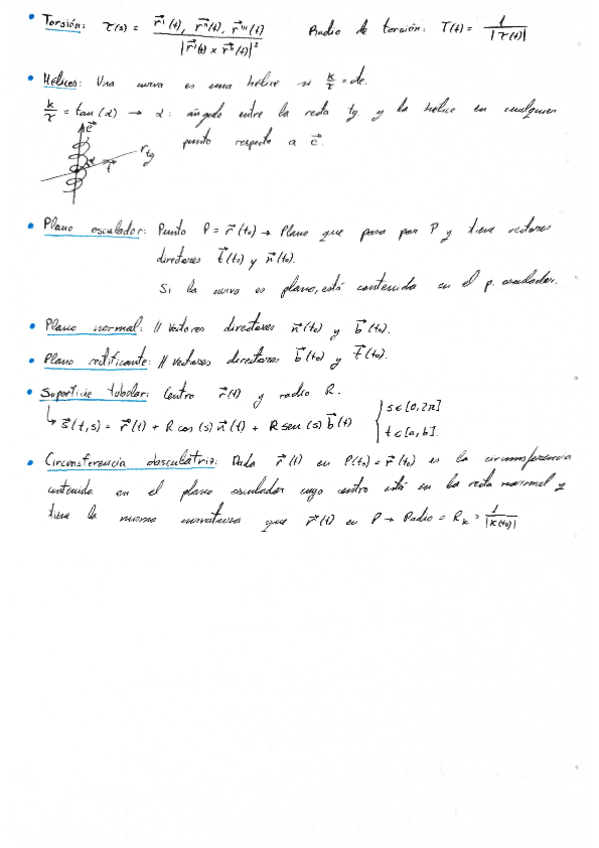 • Torsión: τ(s) = r⃗'(t), r⃗''(t), r⃗'''(t) / |r⃗'(t) × r⃗''(t)|² Radio de torsión: T(t) = 1/|τ(t)|
• Hélices: Una curva es una hélice si k/τ = cte.
k/τ = tan(α) → α: ángulo entre la recta tg. y la hélice en cualquier
punto respecto a c⃗.
c⃗ α t⃗ r tg
• Plano osculador: Punto P = r⃗(t₀) → Plano que pasa por P y tiene vectores
directores t⃗(t₀) y n⃗(t₀).
Si la curva es plana, está contenida en el p. osculador.
• Plano normal: // vectores directores n⃗(t₀) y b⃗(t₀).
• Plano rectificante: // vectores directores b⃗(t₀) y t⃗(t₀).
• Superficie tubular: Centro r⃗(t) y radio R.
↳ s⃗(t,s) = r⃗(t) + R cos(s) n⃗(t) + R sen(s) b⃗(t) { s∈[0,2π]
t∈[a,b].
• Circunferencia obsculatriz: Dada r⃗(t) en P(t₀) = r⃗(t₀) es la circunsferencia
contenida en el plano osculador cuyo centro está en la recta normal y
tiene la misma curvatura que r⃗(t) en P → Radio = Rₖ = 1/|k(t₀)|